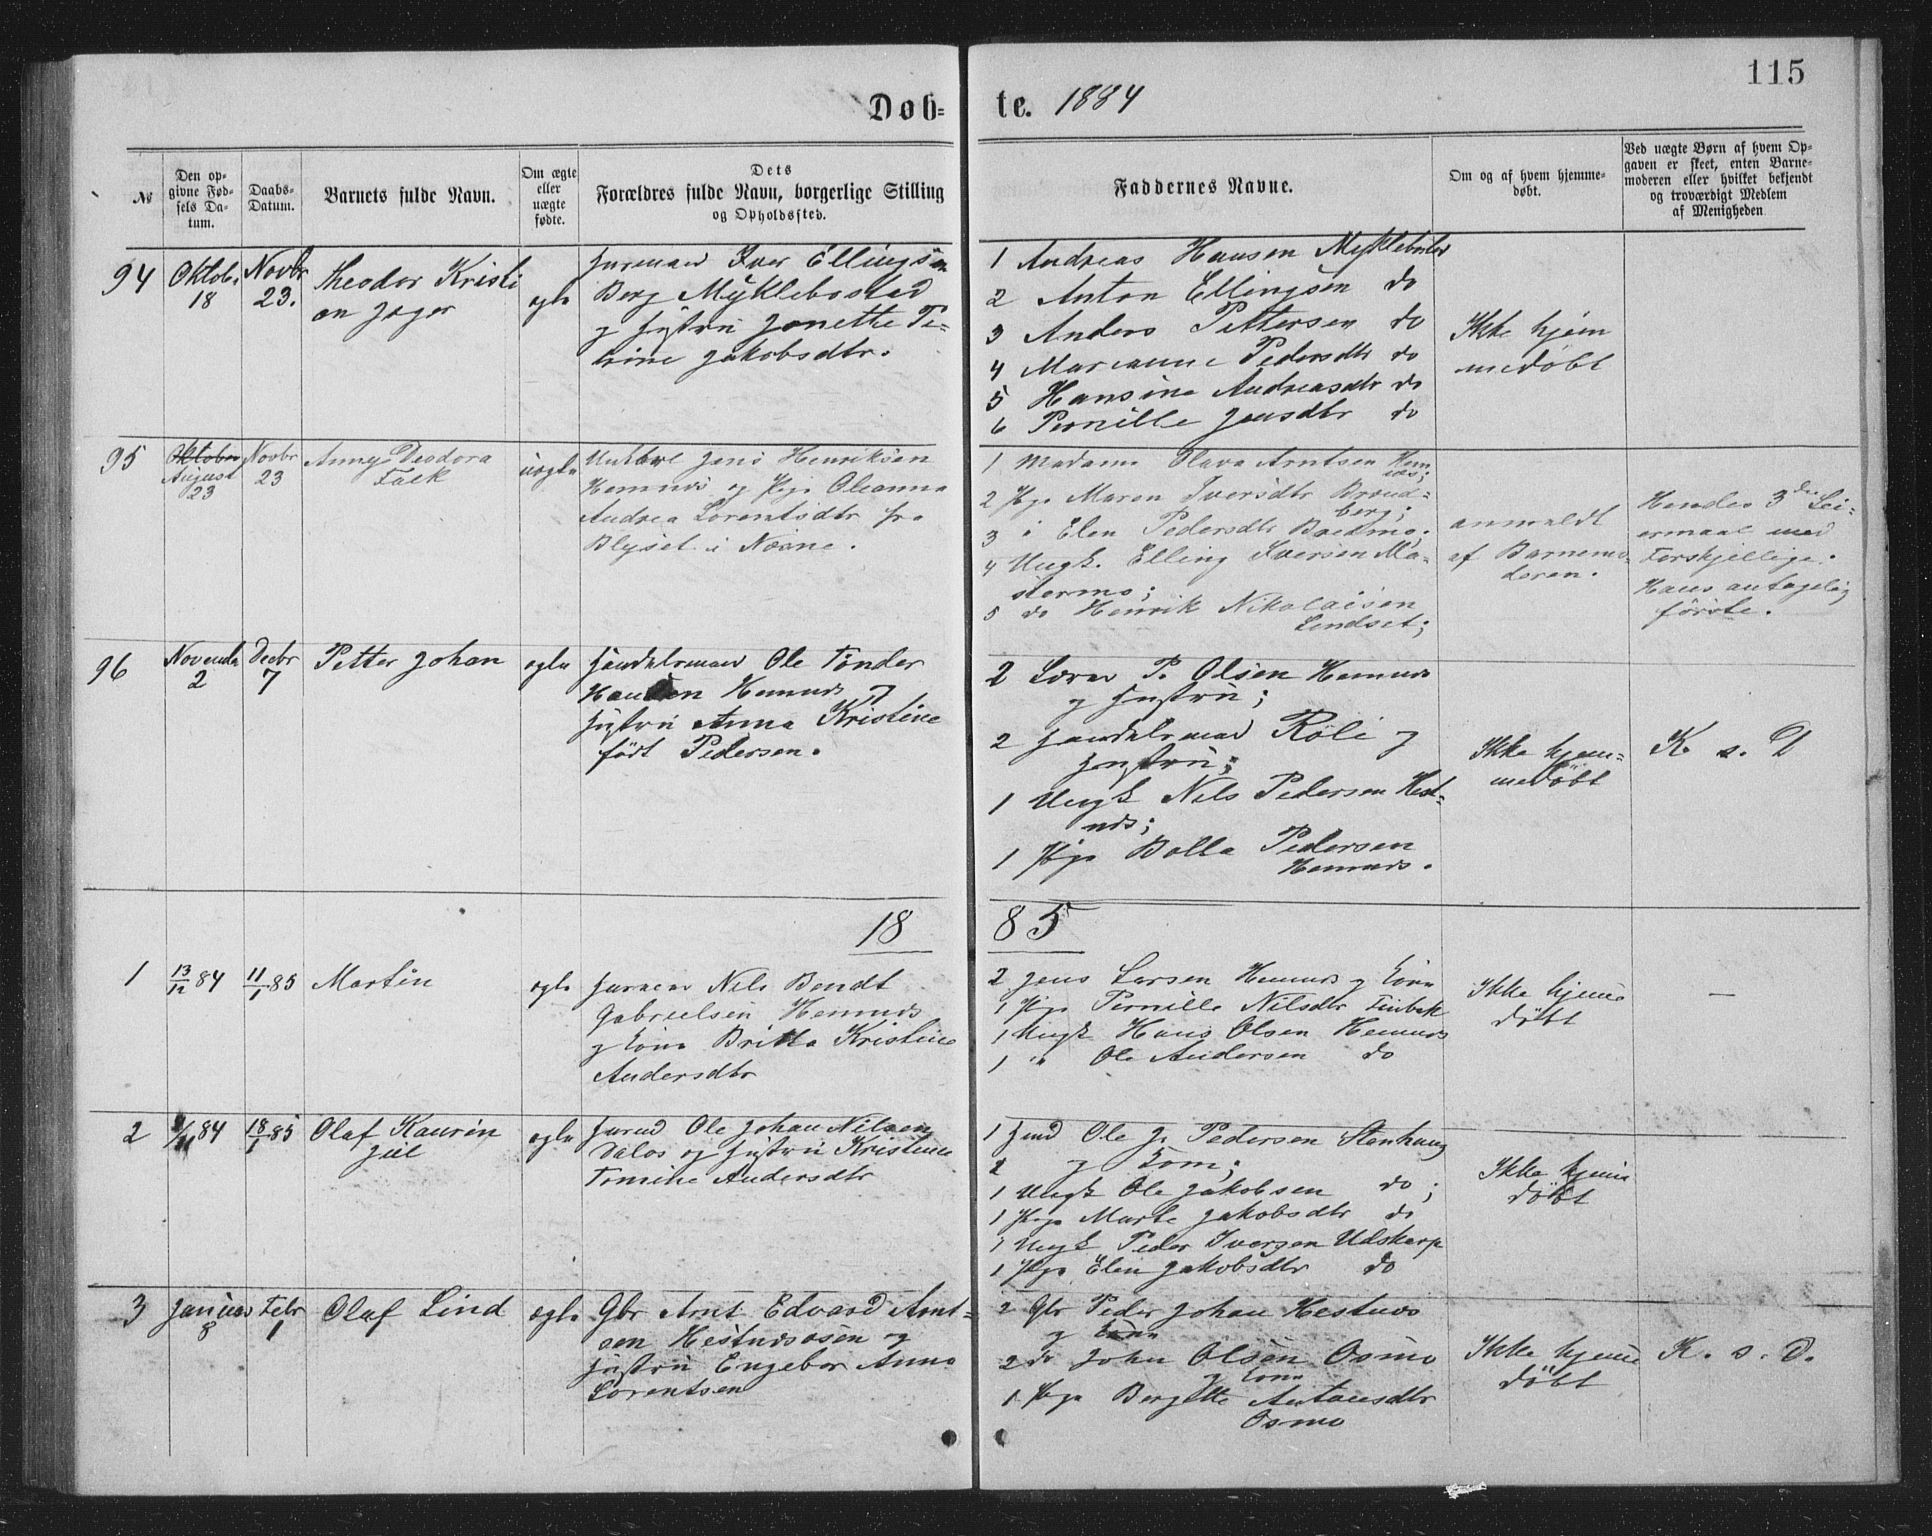 115
Døb= te. 1884
№
Den op-
givne Fød-
sels Da-
tum.
Daabs-
Datum.
Barnets fulde Navn.
Om ægte
eller
uægte
fødte.
Dets
Forældres fulde Navn, borgerlige Stilling
og Opholdssted.
Faddernes Navne.
Om og af hvem hjemme-
døbt.
Ved uægte Børn af hvem Op-
gaven er skeet, enten Barne-
moderen eller hvilket bekjendt
og troværdigt Medlem
af Menigheden
94
Oktob.
18
Novbr
23.
Theodor Kristi
an Jæger
ægte
Iver Ellingsen
Berg Myklebostad
og Hustru Janette
Jakobsdtr.
1 Andreas Hansen Myklebostad
2 Anton Ellingsen do
3 Anders Pettersen do
4 Marianne Pedersdtr do
5 Hansine Andreasdtr do
6 Pernille Jensdtr do
Ikke hjem
medøbt
95
Oktober
August
23
Novbr
23
Anny Deodora
Falk
uægte
Jens Henriksen
Hemnes og Pige Oleanna
Andrea Lorentsdtr fra
i Nesne.
1 Madame Olava Arntsen Hem
nes;
2 Pige Maren Iversdtr Brend=
berg;
3 " Elen Pedersdtr
4 Ungk. Elling Iversen
5 do Henrik Nikolaisen
Lendset;
anmeldt
af Barnemo-
deren.
Hendes 3die Lei=
ermaal med
Forskjellige.
Hans antagelig
første.
96
Novemb
2
Decbr
7
Petter Johan
ægte
Handelsmand Ole Tønder
Hansen Hemnes og
Hustru Anna Kristine
født Pedersen.
2 Lærer P. Olsen Hemnes
og Hustru;
2 Handelsmand Röli og
Hustru;
1 Ungk Nils Pedersen Hest-
nes;
1 Pige Bolla Pedersen
Hemnes.
Ikke hjem=
medøbt
K. s. D
18 85
1
13/12 84
11/1 85
Martin
ægte
Nils Bendt
Gabrielsen Hemnes
og Kone Britta Kristine
Andersdtr
2 Jens Larsen Hemnes og Kone
1 Pige Pernille Nilsdtr Finbak
1 Ungk Hans Olsen Hemnes
1 " Ole Andersen do
Ikke hjemme
døbt
—
2
84
18/1 85
Olaf Kaurin
Juel
ægte
Ole Johan Nilsen
Dalos og Hustru Kristine
Tomine Andersdtr
1 Ole J. Pedersen Stenhaug
2 og Kone;
1 Ungk Ole Jakobsen do;
1 Pige Marte Jakobsdtr do
1 Ungk Peder Iversen Udskarp
1 Pige Elen Jakobsdtr do
Ikke hjem
døbt
3
Januar
8
Febr
1
Olaf Lind
ægte
Gbr Arnt Edvard Arnt=
sen Hestnesosen og
Hustru Engebor Anna
Lorentsen
2 Gbr Peder Johan Hestnes
og Kone
2 do John Olsen Osmo
og Kone
1 Pige Bergitte Antonsdtr
Osmo
Ikke hjemme
døbt
K. s. D.